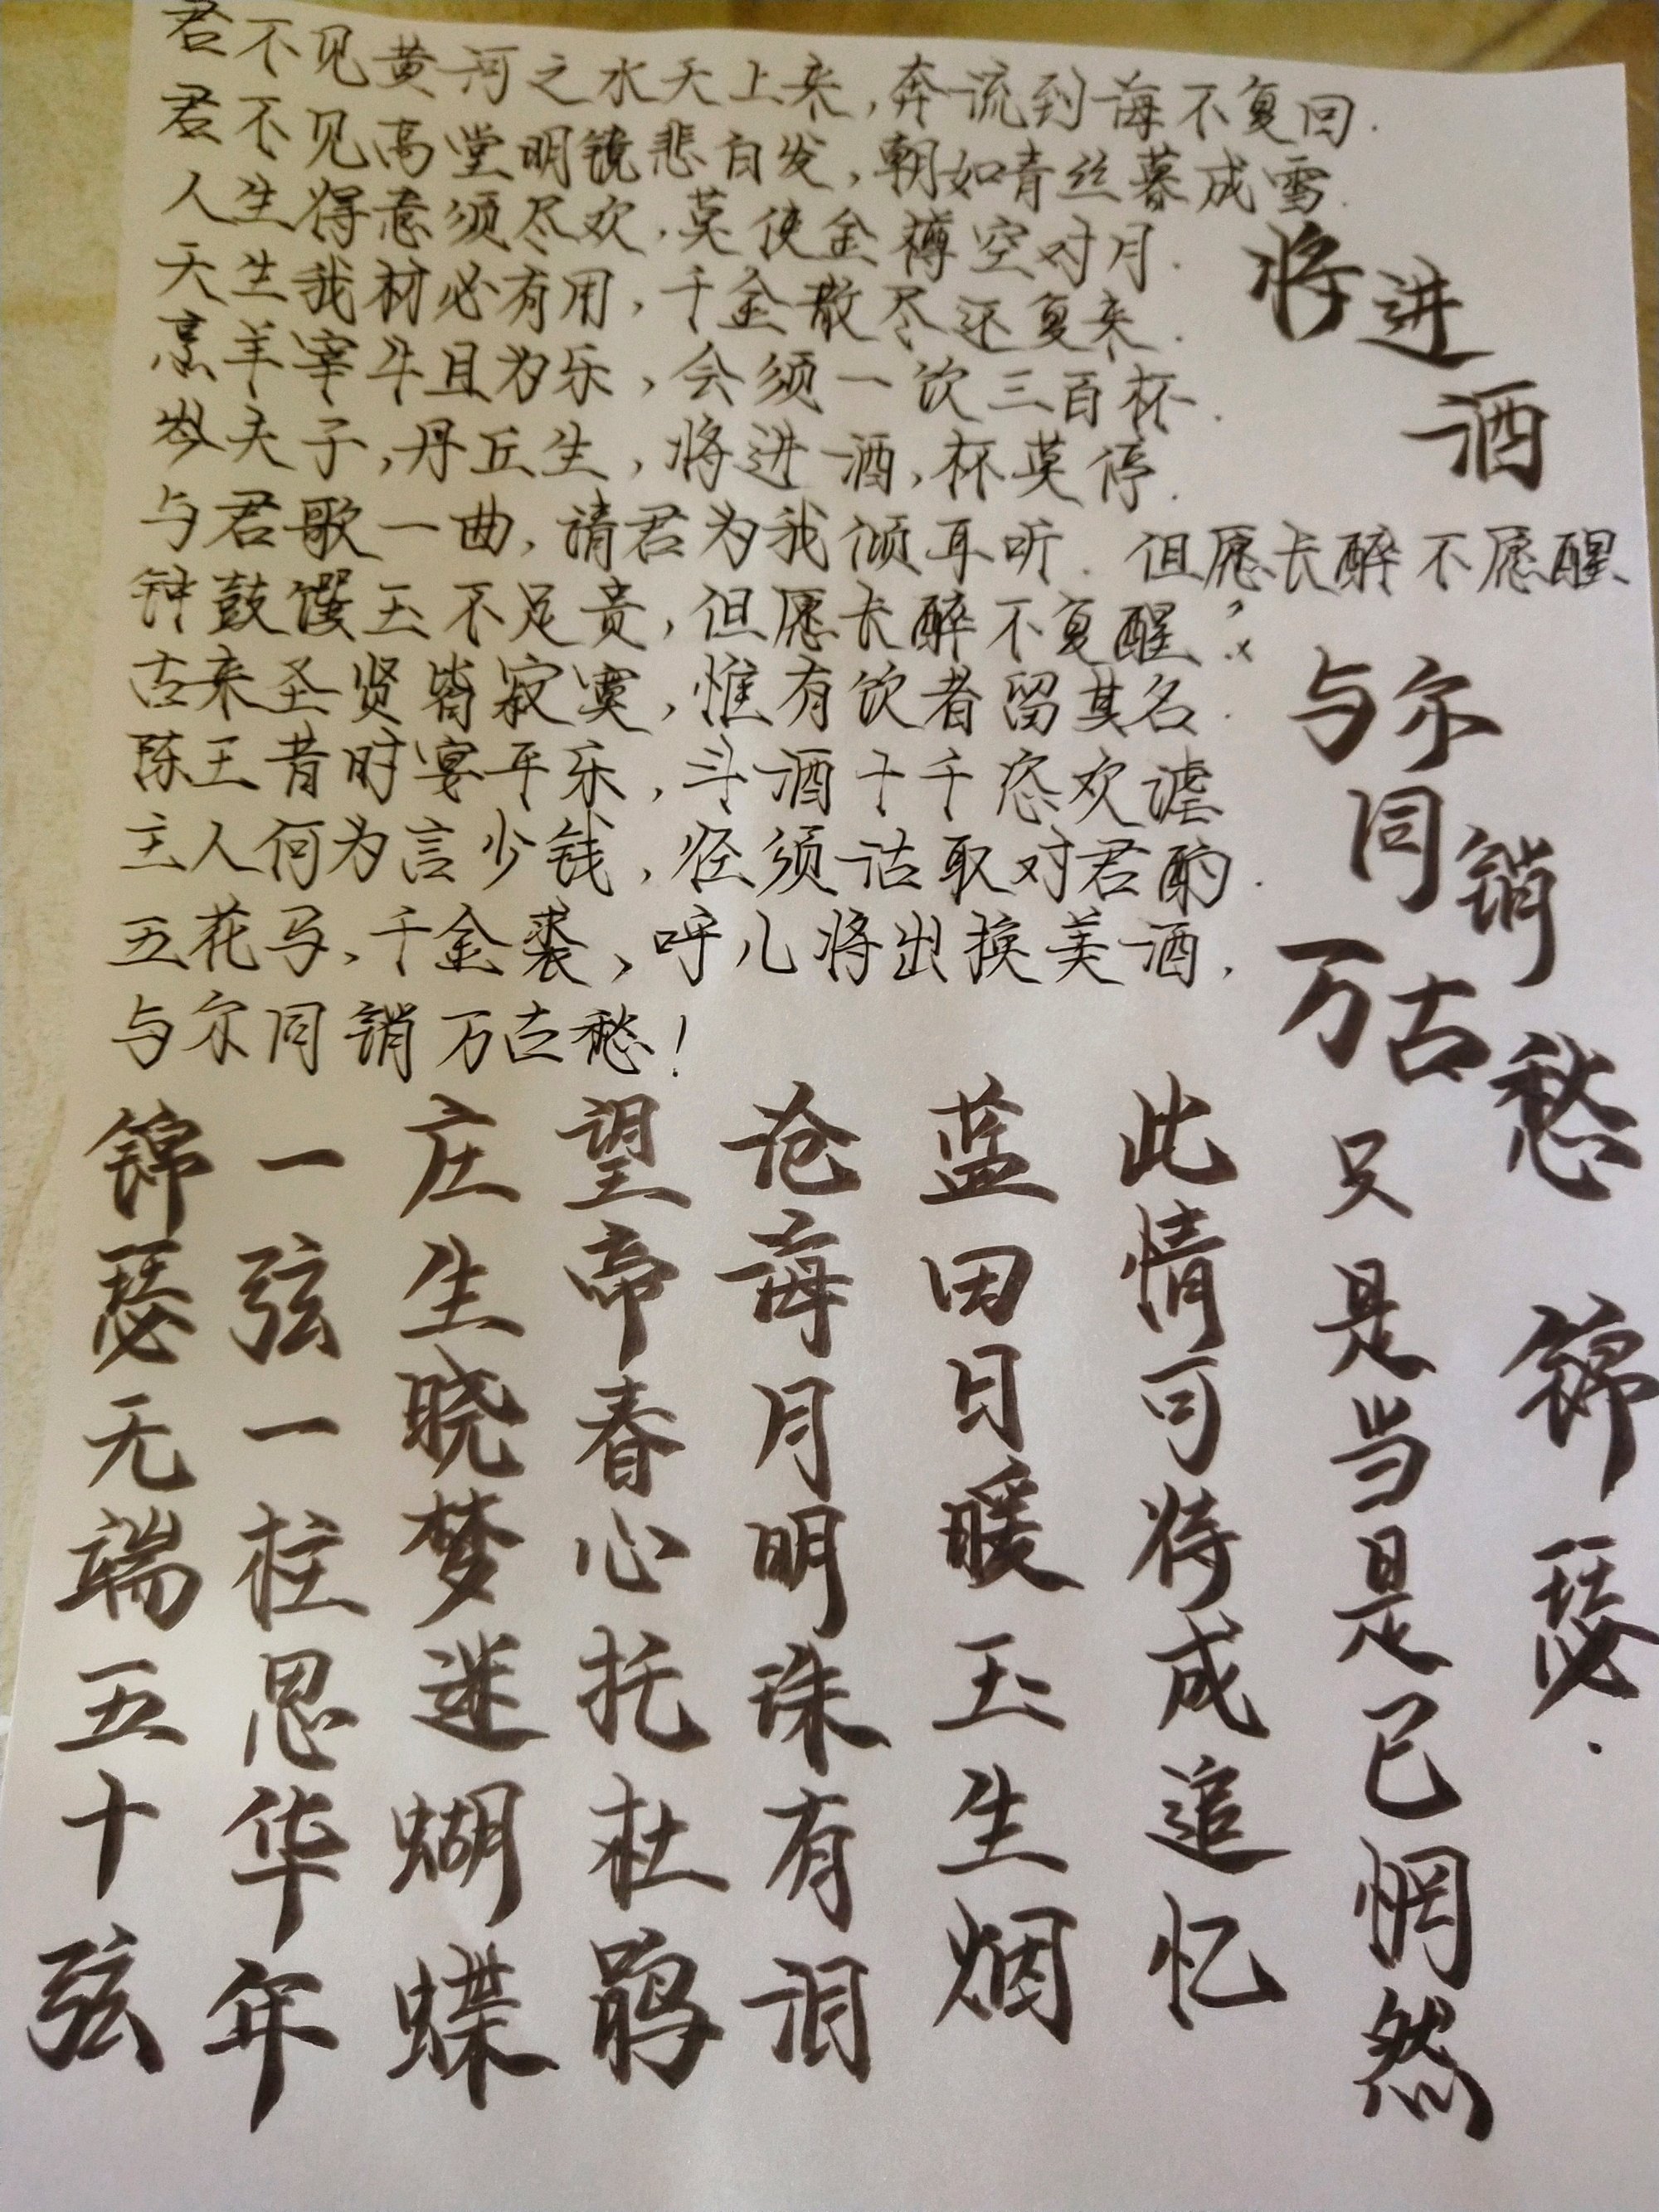 君不见黄河之水天上来，奔流到海不复回.
君不见高堂明镜悲白发，朝如青丝暮成雪.
人生得意须尽欢，莫使金樽空对月.
天生我材必有用，千金散尽还复来.
烹羊宰牛且为乐，会须一饮三百杯.
岑夫子，丹丘生，将进酒，杯莫停.
与君歌一曲，请君为我倾耳听.
钟鼓馔玉不足贵，但愿长醉不复醒.
古来圣贤皆寂寞，惟有饮者留其名.
陈王昔时宴平乐，斗酒十千恣欢谑
主人何为言少钱，径须沽取对君酌.
五花马，千金裘，呼儿将出换美酒，
与尔同销万古愁！
将进酒
但愿长醉不愿醒
与尔同销万古愁
锦瑟无端五十弦
一弦一柱思华年
庄生晓梦迷蝴蝶
望帝春心托杜鹃
沧海月明珠有泪
蓝田日暖玉生烟
此情可待成追忆
只是当是已惘然
锦瑟.